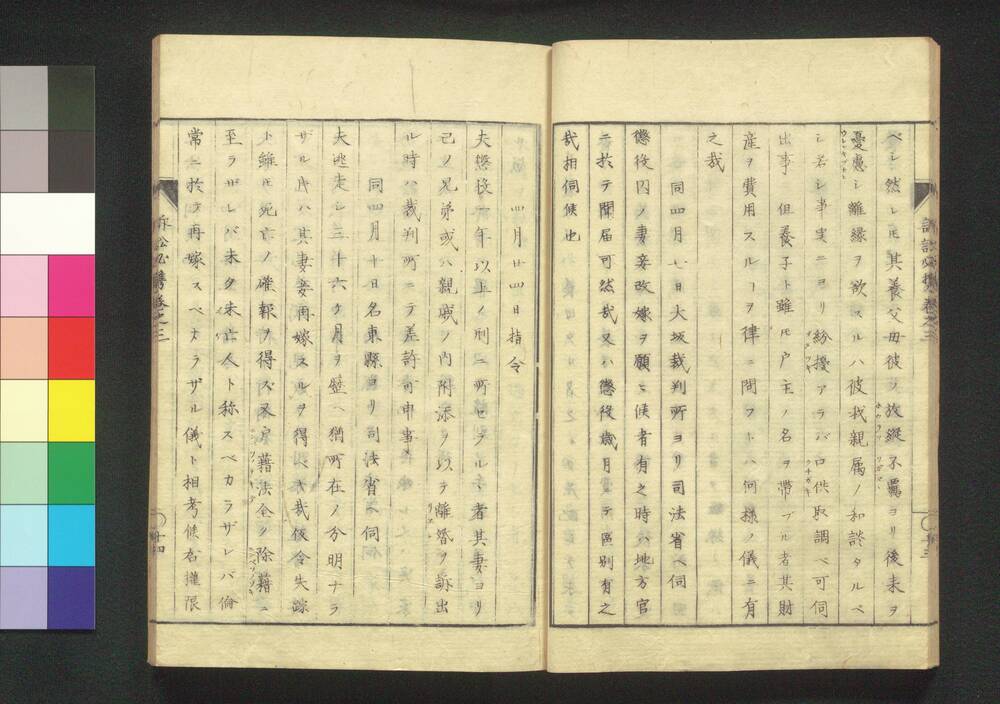 ベシ然レ𪜈其養父毋彼ノ放縦不羈ヨリ後来ヲ
憂慮シ離縁ヲ欲スルハ彼我親属ノ和談タルベ
シ若シ事実ニヨリ紛擾アラバ口供取調ベ可伺
出事 但養子ト雖𪜈戸主ノ名ヲ帯ブル者其財
産ヲ費用スルヿヲ律ニ問フトハ何様ノ儀ニ有
之哉
同四月七日大坂裁判所ヨリ司法省ヘ伺
懲役囚ノ妻妾改嫁ヲ願ヒ候者有之時ハ地方官
ニ於テ聞届可然哉又ハ懲役歳月ニテ區別有之
哉相伺候也
四月廿四日指令
夫懲役一年以上ノ刑ニ所セラルヽ者其妻ヨリ
己ノ兄弟或ハ親戚ノ内附添ヲ以テ離婚ヲ訴出
ル時ハ裁判所ニテ差許可申事
同四月十日名東縣ヨリ司法省ヘ伺
夫逃走シ三十六ケ月ヲ歴ヘ猶所在ノ分明ナラ
ザル時ハ其妻妾再嫁スルヲ得ベキ哉仮令失踪
ト雖𪜈死亡ノ確報ヲ得ズ又戸籍法全ク除籍ニ
至ラザレバ未タ未亡人ト称スベカラザレバ倫
常ニ於テ再嫁スベカラザル儀ト相考候右權限
訴訟必携巻之三
十四
訴訟必携巻之三